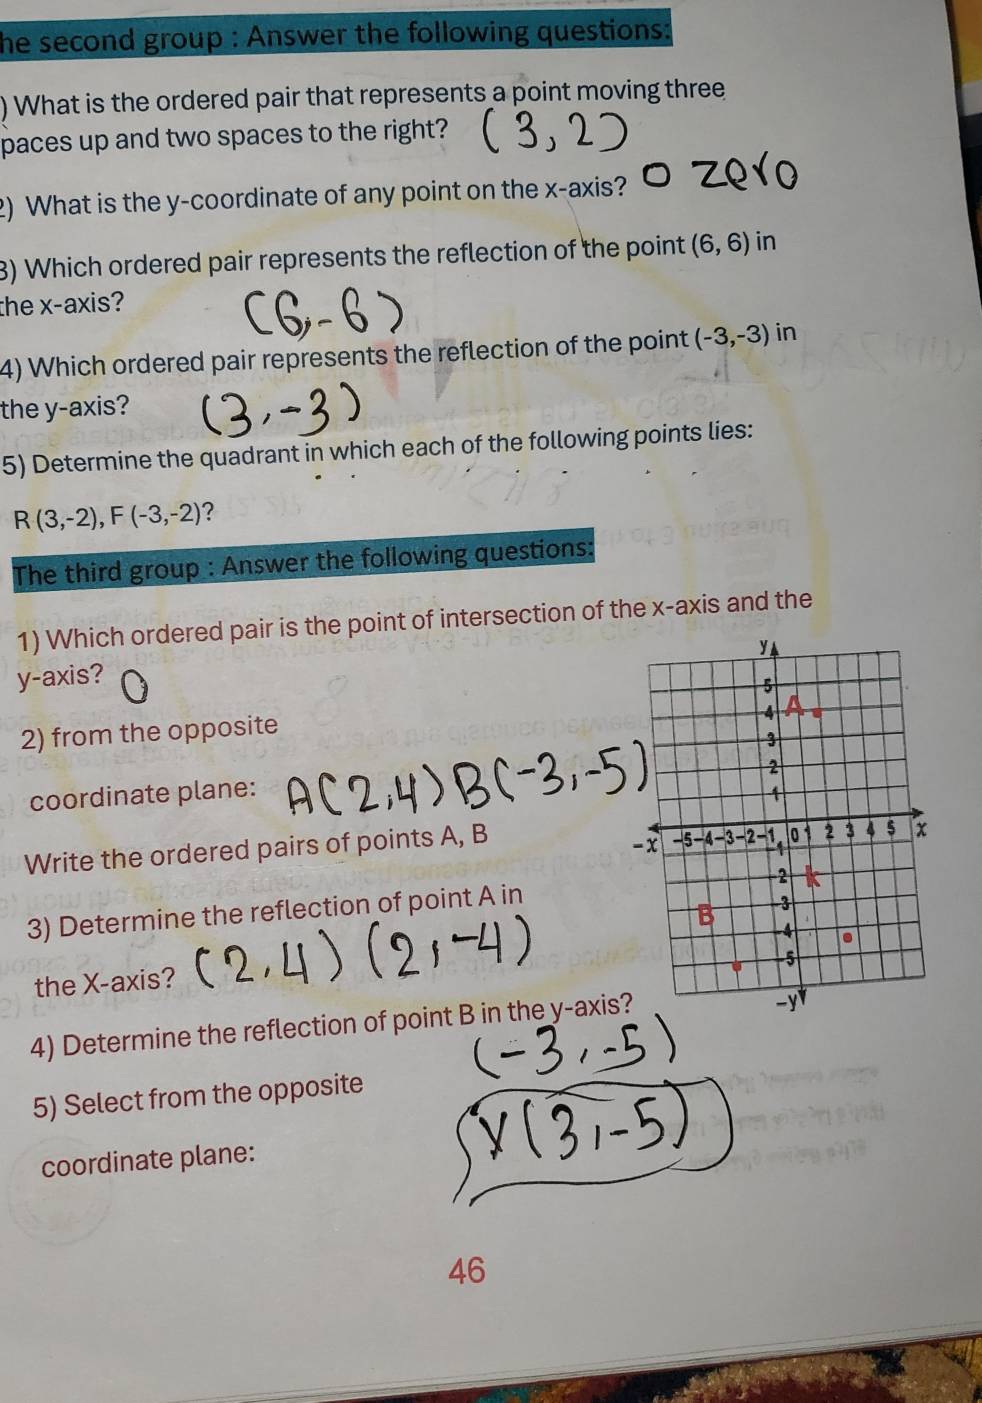 he second group : Answer the following questions:
) What is the ordered pair that represents a point moving three
paces up and two spaces to the right? (3,2)
2) What is the y-coordinate of any point on the x-axis? 0 zero
3) Which ordered pair represents the reflection of the point (6, 6) in
the x-axis? (6,-6)
4) Which ordered pair represents the reflection of the point (-3,-3) in
the y-axis? (3,-3)
5) Determine the quadrant in which each of the following points lies:
R (3,-2), F (-3,-2)?
The third group : Answer the following questions:
1) Which ordered pair is the point of intersection of the x-axis and the
y-axis? 0
2) from the opposite
coordinate plane: A(2,4) B(-3,-5)
Write the ordered pairs of points A, B
3) Determine the reflection of point A in
the X-axis? (2,4) (2,-4)
4) Determine the reflection of point B in the y-axis?
(-3,-5)
5) Select from the opposite
coordinate plane:
Y(3,-5)
y
5
4 A
3
2
1
-x -5 -4 -3 -2 -1 0 1 2 3 4 5 x
1
2 k
3
B
4
5
-y
46